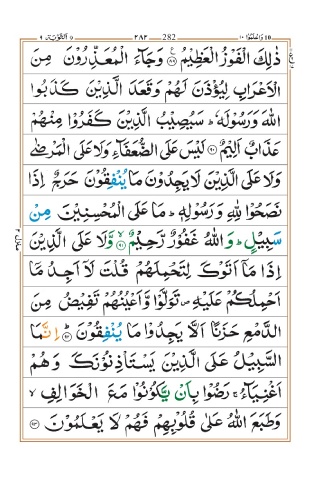 التوبة ٩ 282 ٢٨٢ واعلموا ١٠
ذٰلِكَ الْفَوْزُ الْعَظِيْمُ ۧ‏﴿۸۹﴾ وَجَآءَ الْمُعَذِّرُوْنَ مِنَ
الْاَعْرَابِ لِيُؤْذَنَ لَهُمْ وَقَعَدَ الَّذِيْنَ كَذَبُوا
اللّٰهَ وَرَسُوْلَهٗ ؕ سَيُصِيْبُ الَّذِيْنَ كَفَرُوْا مِنْهُمْ
عَذَابٌ اَلِيْمٌ ﴿۹۰﴾ لَيْسَ عَلَى الضُّعَفَآءِ وَلَا عَلَى الْمَرْضٰى
وَلَا عَلَى الَّذِيْنَ لَا يَجِدُوْنَ مَا يُنْفِقُوْنَ حَرَجٌ اِذَا
نَصَحُوْا لِلّٰهِ وَ رَسُوْلِهٖ ؕ مَا عَلَى الْمُحْسِنِيْنَ مِنْ
سَبِيْلٍ ؕ وَاللّٰهُ غَفُوْرٌ رَّحِيْمٌ ۙ‏﴿۹۱﴾ وَّلَا عَلَى الَّذِيْنَ
اِذَا مَاۤ اَتَوْكَ لِتَحْمِلَهُمْ قُلْتَ لَاۤ اَجِدُ مَاۤ
اَحْمِلُكُمْ عَلَيْهِ ۪ تَوَلَّوْا وَّاَعْيُنُهُمْ تَفِيْضُ مِنَ
الدَّمْعِ حَزَنًا اَلَّا يَجِدُوْا مَا يُنْفِقُوْنَ ؕ‏﴿۹۲﴾ اِنَّمَا
السَّبِيْلُ عَلَى الَّذِيْنَ يَسْتَاْذِنُوْنَكَ وَهُمْ
اَغْنِيَآءُ ۚ رَضُوْا بِاَنْ يَّكُوْنُوْا مَعَ الْخَوَالِفِ ۙ
وَطَبَعَ اللّٰهُ عَلٰى قُلُوْبِهِمْ فَهُمْ لَا يَعْلَمُوْنَ ﴿۹۳﴾